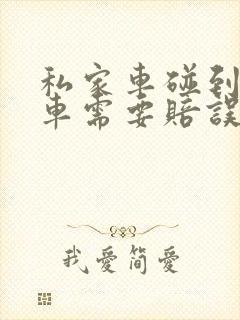 私家車碰到
車需要賠誤
我愛簡愛